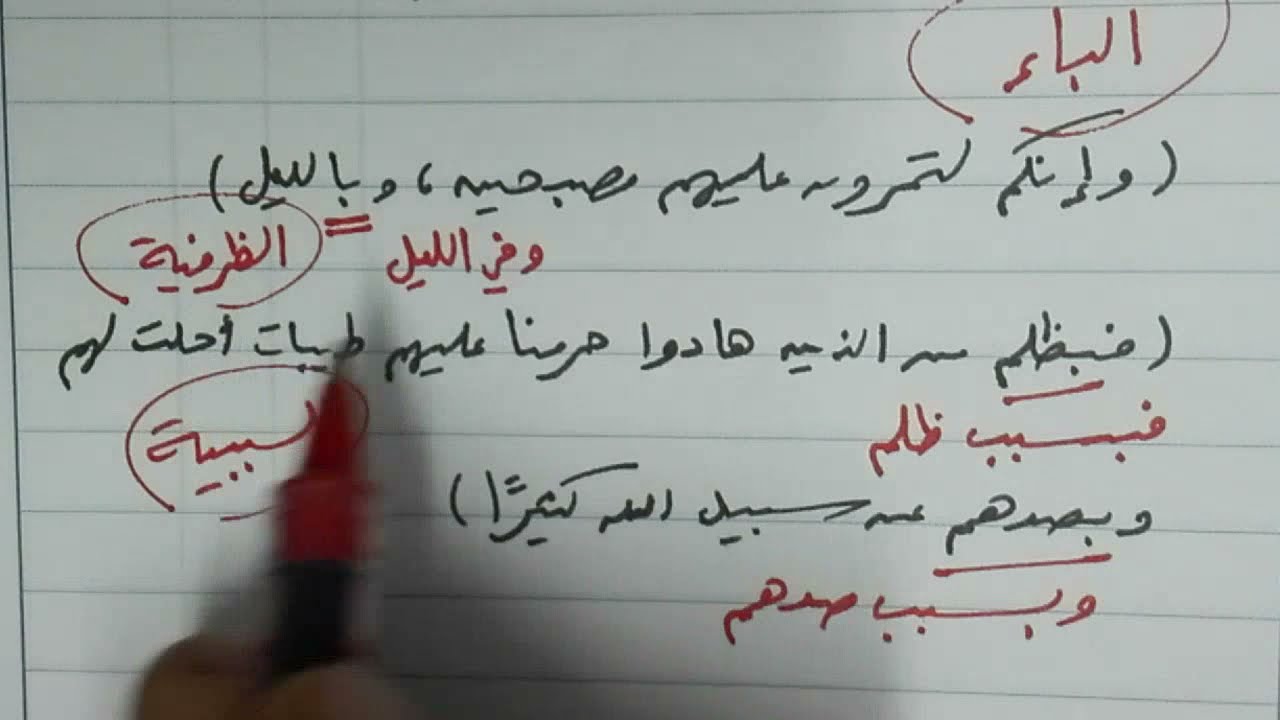 الباء
(وإنكم لتمرون عليهم مصبحين، وبالليل)
وفي الليل = الظرفية
(فبظلم من الذين هادوا حرمنا عليهم طيبات أحلت لهم
فبسبب ظلم السببية
وبصدهم عن سبيل الله كثيرًا)
وبسبب صدهم